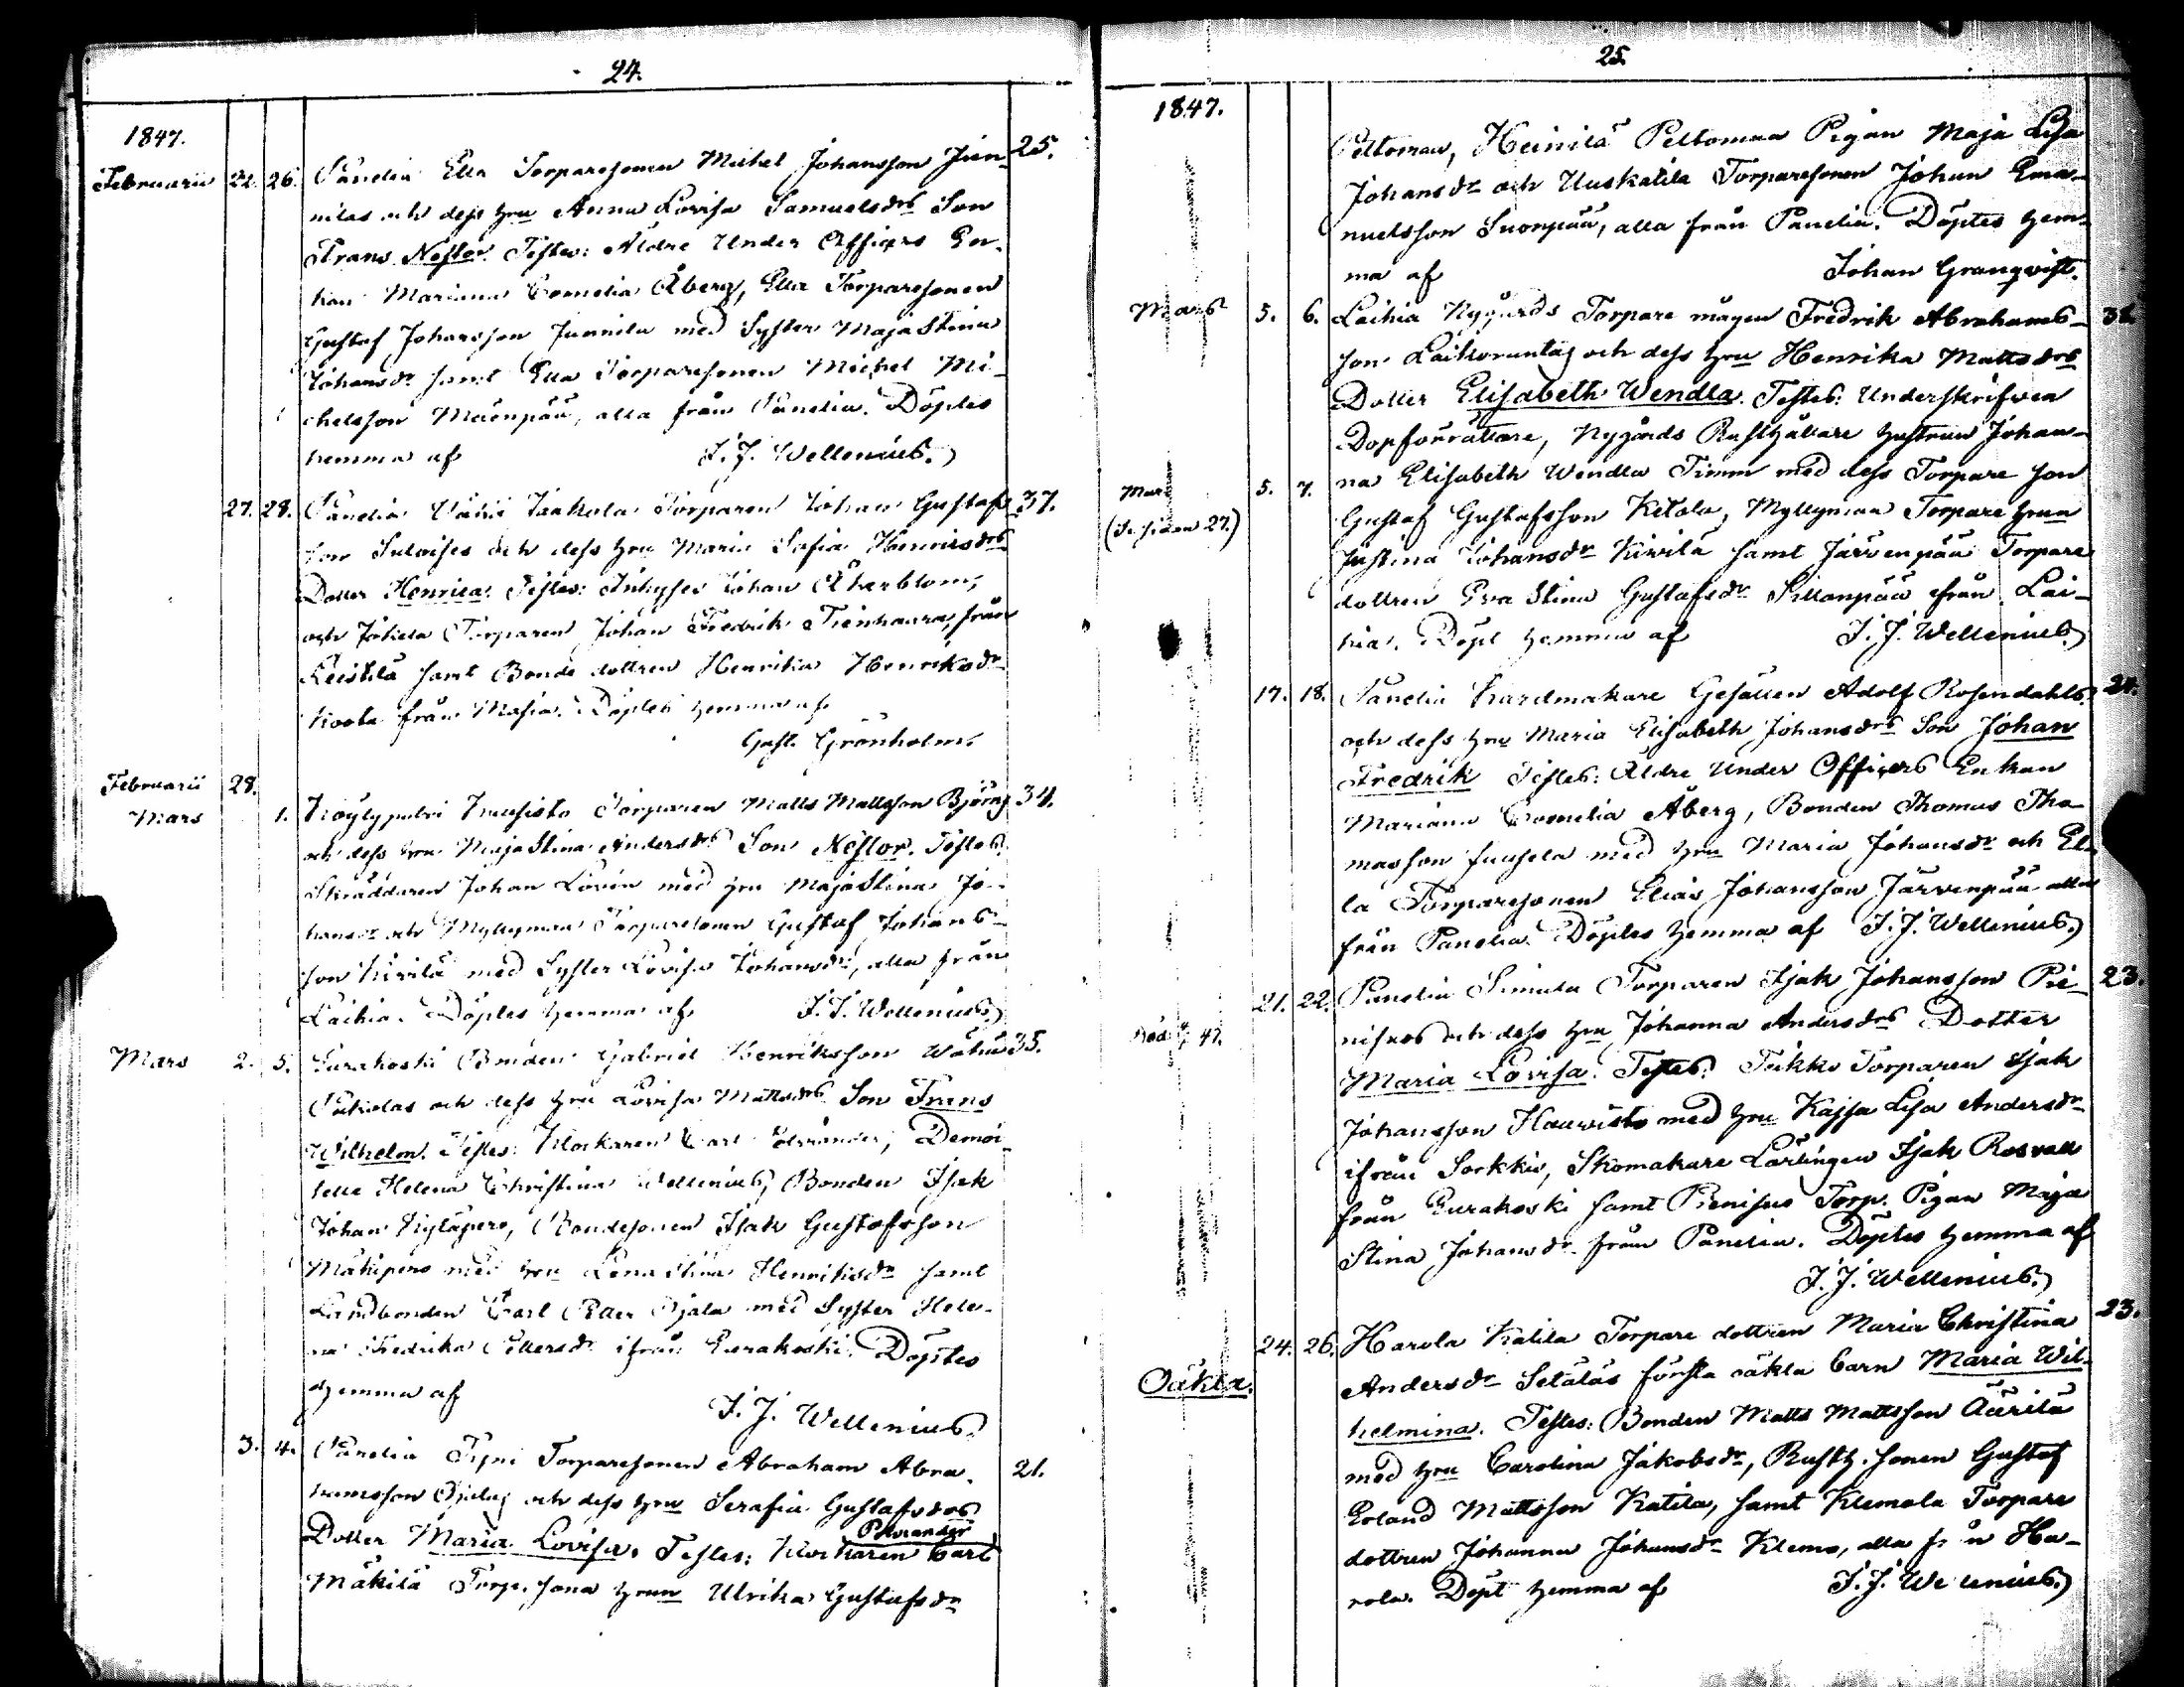 24.
1847.
Februarii 22. 26. Panelia Ella Torparesonen Michel Johansson Juu- 25.
nilas och dess hru Anna Lovisa Samuelsdrs Son
Frans Nestor. Testes: Äldre Under Officers En-
kan Mariana Cornelia Åberg, Ella Torparesonen
Gustaf Johansson Juunila med Syster Maja Stina
Johansdr samt Ella Torparesonen Michel Mi-
chelsson Mäenpää, alla från Panelia. Döptes
hemma af J. J. Wellenius.
27. 28. Panelia Torparen Johan Gustafs- 37.
son och dess hru Maria Sofia Henriksdrs
Dotter Henrica. Testes: Inhyses Johan Åkerblom,
och Torparen Johan Fredrik Tienhaara, från
Leistilä samt Bonde dottren Henrika Henriksdr
från Masia. Döptes hemma af
Gust. Grönholm.
Februarii 28.
Mars 1. Köylypolvi Torparen Matts Mattsson Björns 34.
och dess hru Maja Stina Andersdrs Son Nestor. Testes:
Skräddaren Johan Lovén med hru Maja Stina Jo-
hansdr och Myllymaa Torparesonen Gustaf Johans-
son Kivilä med Syster Lovisa Johansdr, alla från
Laihia. Döptes hemma af J. J. Wellenius.
Mars 2. 5. Eurakoski Bonden Gabriel Henriksson Wähä 35.
och dess hru Lovisa Mattsdrs Son Frans
Wilhelm. Testes: Klockaren Carl Polviander, Demoi-
selle Helena Christina Wellenius, Bonden Isak
Johan Kyläpere, Bondesonen Isak Gustafsson
Mäkipere med hru Lena Stina Henriksdr samt
Landbonden Carl Petter Ojala med Syster Hele-
na Fredrika Pettersdr ifrån Eurakoski. Döptes
hemma af
J. J. Wellenius.
3. 4. Panelia Torparesonen Abraham Abra- 21.
hamsson Ojalas och dess hru Serafia Gustafsdrs
Dotter Maria Lovisa. Testes: Klockaren Carl Polviander
Mäkilä Torp. sons hrun Ulrika Gustafsdr
25.
1847.
Peltomaa, Heinilä Peltomaa Pigan Maja Lisa
Johansdr och Uuskatila Torparesonen Johan Ema-
nuelsson Suonpää, alla från Panelia. Döptes hem-
ma af Johan Granqvist.
Mars 5. 6. Laihia Nygårds Torpare mågen Fredrik Abrahams-
son och dess hru Henrika Mattsdrs
Dotter Elisabeth Wendla. Testes: Underskrifven
Dopförrättare, Nygårds Rusthållare hustrun Johan-
Mars 5. 7. na Elisabeth Wendla Timm med dess Torpare son
(Se sidan 27.) Gustaf Gustafsson Ketola, Myllymaa Torpare hrun
Justina Johansdr Kivilä samt Järvenpää Torpare
dottren Eva Stina Gustafsdr Sillanpää från Lai-
hia. Döpt hemma af J. J. Wellenius.
17. 18. Panelia Kardmakare Gesällen Adolf Rosendahls 24.
och dess hru Maria Elisabeth Johansdrs Son Johan
Fredrik Testes: Äldre Under Officers Enkan
Mariana Cornelia Åberg, Bonden Thomas Tho-
masson med hru Maria Johansdr och El-
la Torparesonen Elias Johansson Järvenpää alla
från Panelia. Döptes hemma af J. J. Wellenius.
21. 22. Panelia Simula Torparen Isak Johansson Pie- 23.
nisuos och dess hru Johanna Andersdrs Dotter
Maria Lovisa. Testes: Torparen Isak
Johansson Hauvisto med hru Kajsa Lisa Andersdr
ifrån Sorkkis, Skomakare Lärlingen Isak Rosvall
från Eurakoski samt Pienisuo Torp. Pigan Maja
Stina Johansdr från Panelia. Döptes hemma af
J. J. Wellenius.
24. 26. Harola Katila Torpare dottren Maria Christina 23.
Oäkta. Andersdr Setäläs första oäkta barn Maria Wil-
helmina. Testes: Bonden Matts Mattsson Äärilä
med hru Carolina Jakobsdr, Rusth. sonen Gustaf
Erland Mattsson Katila, samt Klemola Torpare
dottren Johanna Johansdr Klemo, alla från Ha-
rola. Döpt hemma af J. J. Wellenius.